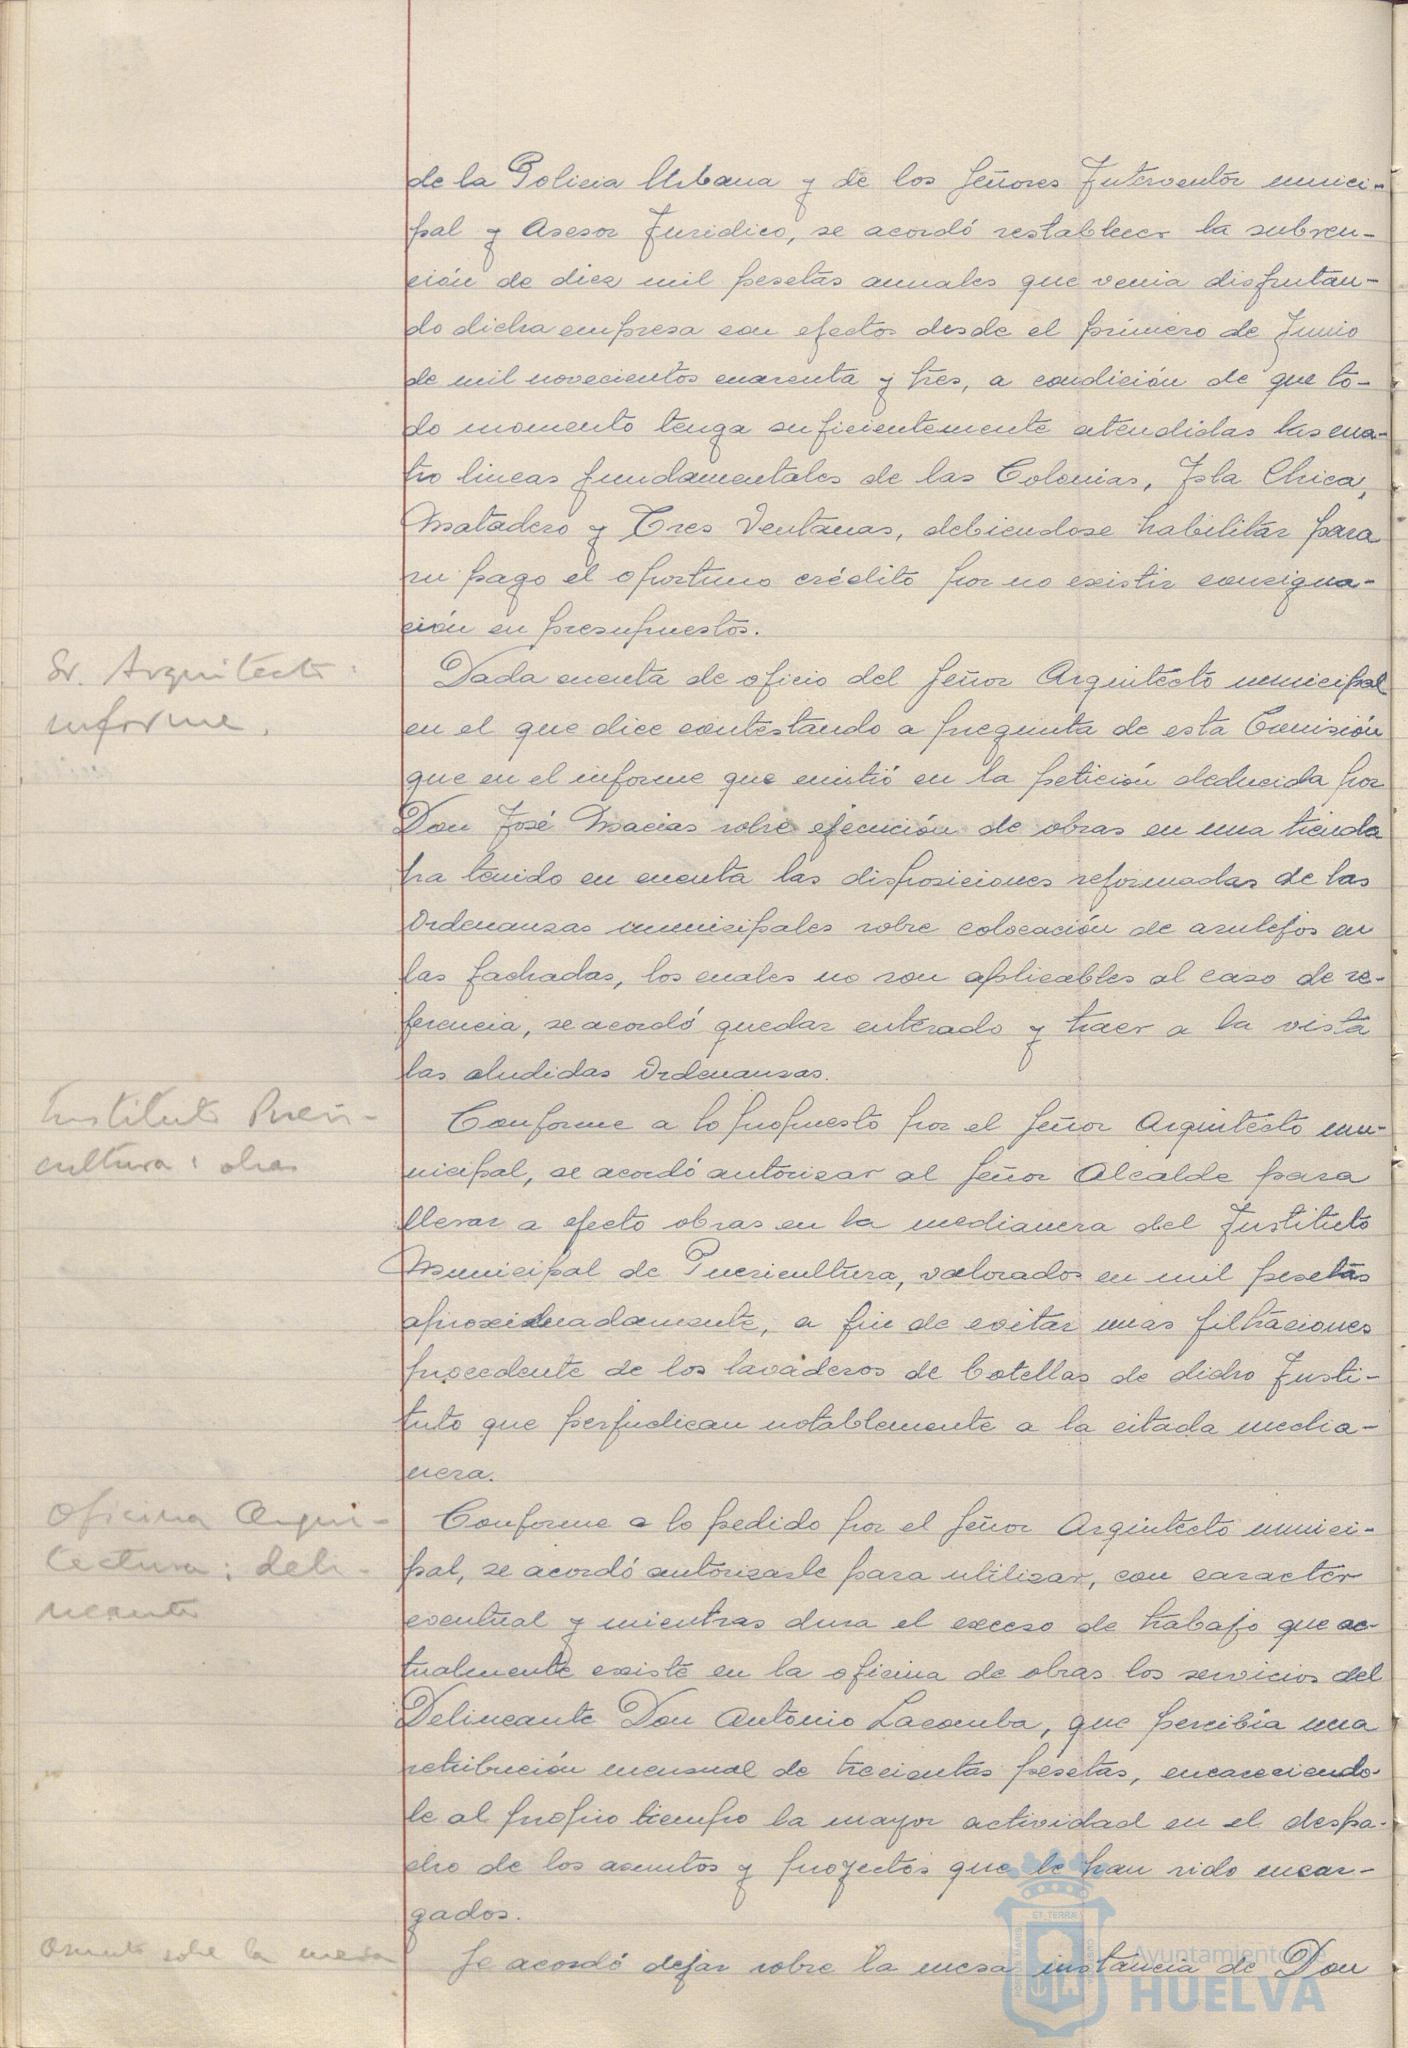 de la Policia Urbana y de los Señores Interventor munici-
pal y Asesor Juridico, se acordó restablecer la subven-
ción de diez mil pesetas anuales que venia disfrutan-
do dicha empresa con efectos desde el primero de Junio
de mil novecientos cuarenta y tres, a condición de que to-
do momento tenga suficientemente atendidas las cua-
tro lineas fundamentales de las Colonias, Isla Chica,
Matadero y Tres Ventanas, debiendose habilitar para
su pago el oportuno crédito por no existir consigna-
ción en presupuestos.
Sr. Arquitecto:
informe.
Dada cuenta de oficio del Señor Arquitecto municipal
en el que dice contestando a pregunta de esta Comisión
que en el informe que emitió en la petición deducida por
Don José Macias sobre ejecución de obras en una tienda
ha tenido en cuenta las disposiciones reformadas de las
Ordenanzas municipales sobre colocación de azulejos en
las fachadas, los cuales no son aplicables al caso de re-
ferencia, se acordó quedar enterado y traer a la vista
las aludidas Ordenanzas.
Instituto Pueri-
cultura: obras
Conforme a lo propuesto por el Señor Arquitecto mu-
nicipal, se acordó autorizar al Señor Alcalde para
llevar a efecto obras en la medianera del Instituto
Municipal de Puericultura, valorados en mil pesetas
aproximadamente, a fin de evitar unas filtraciones
procedente de los lavaderos de botellas de dicho Insti-
tuto que perjudican notablemente a la citada media-
nera.
Oficina Arqui-
tectura: deli-
neante
Conforme a lo pedido por el Señor Arquitecto munici-
pal, se acordó autorizarle para utilizar, con caracter
eventual y mientras dura el exceso de trabajo que ac-
tualmente existe en la oficina de obras los servicios del
Delineante Don Antonio Lacomba, que percibia una
retribución mensual de trecientas pesetas, encareciendo-
le al propio tiempo la mayor actividad en el despa-
cho de los asuntos y proyectos que le han sido encar-
gados.
Asunto sobre la mesa
Se acordó dejar sobre la mesa instancia de Don
Ayuntamiento de
HUELVA